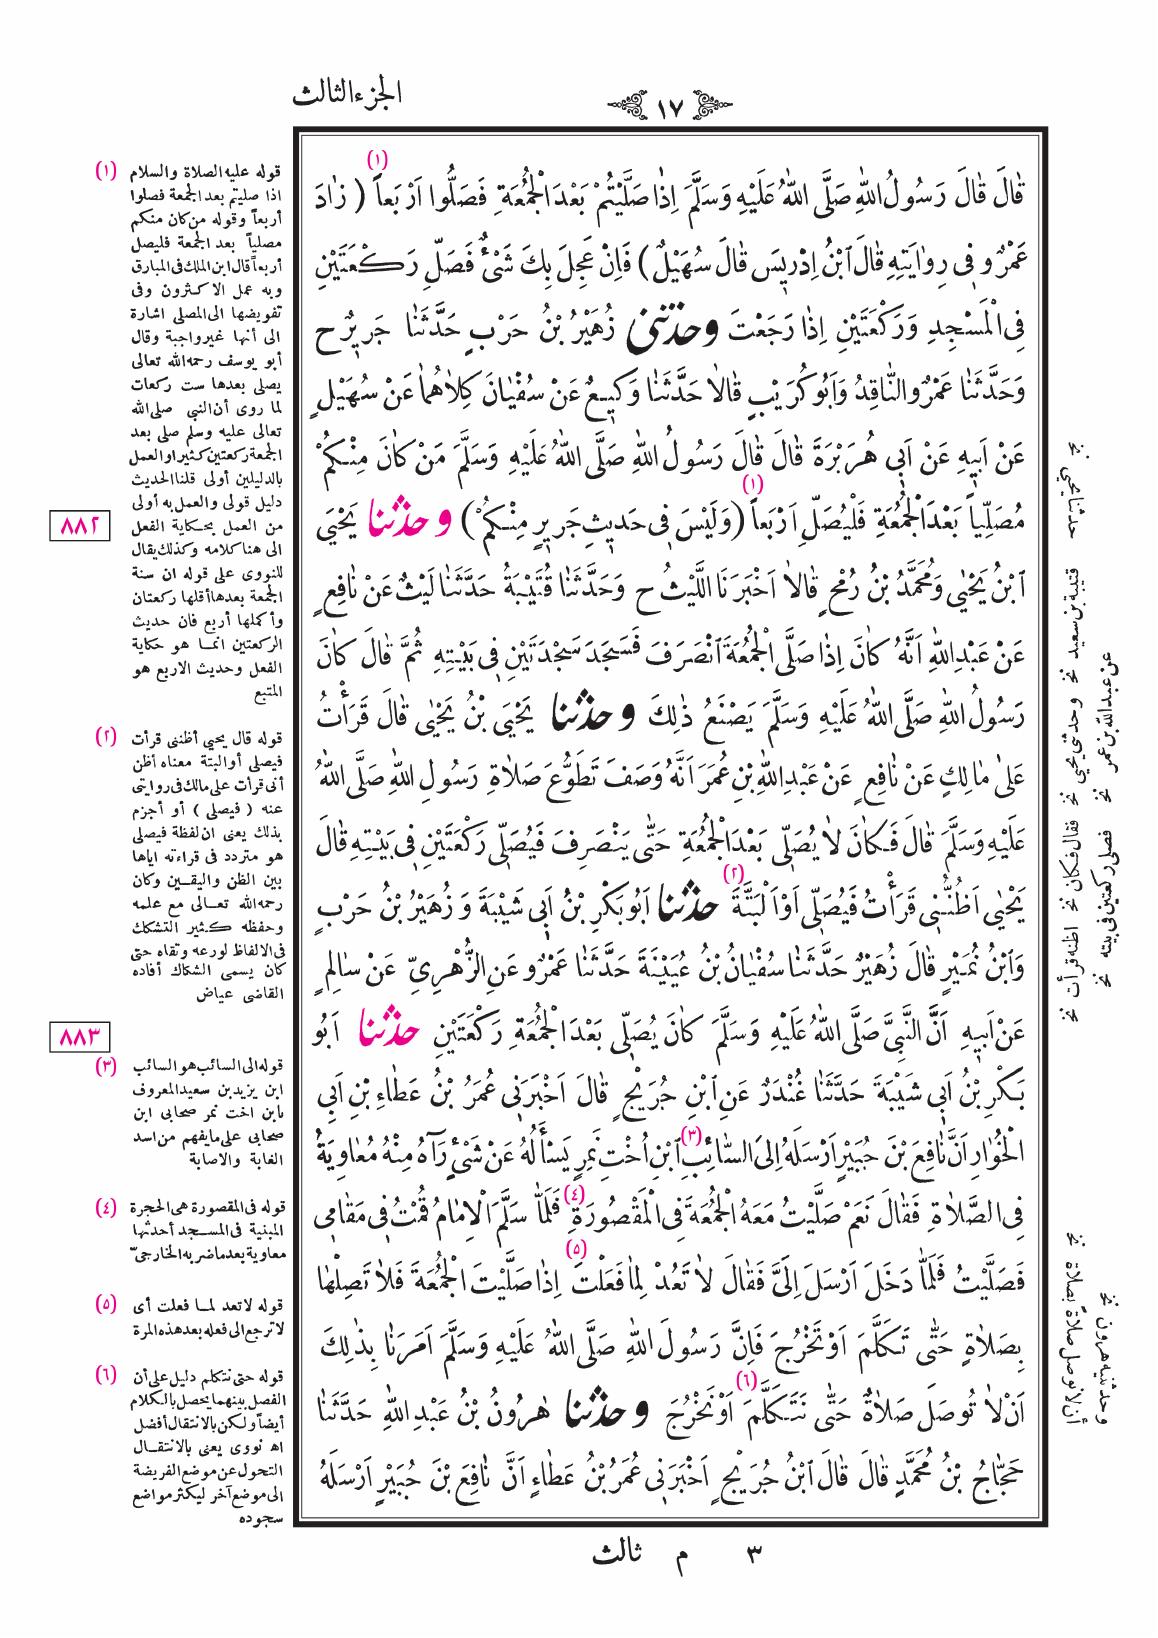 الجزء الثالث
١٧
قَالَ قَالَ رَسُولُ اللهِ صَلَّى اللهُ عَلَيْهِ وَسَلَّمَ اِذَا صَلَّيْتُمْ بَعْدَ الْجُمُعَةِ فَصَلُّوا اَرْبَعاً (١) ( زَادَ
عَمْرٌو فِي رِوَايَتِهِ قَالَ ابْنُ اِدْرِيسَ قَالَ سُهَيْلٌ ) فَاِنْ عَجِلَ بِكَ شَيْءٌ فَصَلِّ رَكْعَتَيْنِ
فِي الْمَسْجِدِ وَرَكْعَتَيْنِ اِذَا رَجَعْتَ وحدثني زُهَيْرُ بْنُ حَرْبٍ حَدَّثَنَا جَرِيرٌ ح
وَحَدَّثَنَا عَمْرٌو النَّاقِدُ وَاَبُو كُرَيْبٍ قَالَا حَدَّثَنَا وَكِيعٌ عَنْ سُفْيَانَ كِلَاهُمَا عَنْ سُهَيْلٍ
عَنْ اَبِيهِ عَنْ اَبِي هُرَيْرَةَ قَالَ قَالَ رَسُولُ اللهِ صَلَّى اللهُ عَلَيْهِ وَسَلَّمَ مَنْ كَانَ مِنْكُمْ
مُصَلِّياً بَعْدَ الْجُمُعَةِ فَلْيُصَلِّ اَرْبَعاً (١) (وَلَيْسَ فِي حَدِيثِ جَرِيرٍ مِنْكُمْ) وحدثنا يَحْيَى
ابْنُ يَحْيَى وَمُحَمَّدُ بْنُ رُمْحٍ قَالَا اَخْبَرَنَا اللَّيْثُ ح وَحَدَّثَنَا قُتَيْبَةُ حَدَّثَنَا لَيْثٌ عَنْ نَافِعٍ
عَنْ عَبْدِ اللهِ اَنَّهُ كَانَ اِذَا صَلَّى الْجُمُعَةَ انْصَرَفَ فَسَجَدَ سَجْدَتَيْنِ فِي بَيْتِهِ ثُمَّ قَالَ كَانَ
رَسُولُ اللهِ صَلَّى اللهُ عَلَيْهِ وَسَلَّمَ يَصْنَعُ ذٰلِكَ وحدثنا يَحْيَى بْنُ يَحْيَى قَالَ قَرَأْتُ
عَلَى مَالِكٍ عَنْ نَافِعٍ عَنْ عَبْدِ اللهِ بْنِ عُمَرَ اَنَّهُ وَصَفَ تَطَوُّعَ صَلَاةِ رَسُولِ اللهِ صَلَّى اللهُ
عَلَيْهِ وَسَلَّمَ قَالَ فَكَانَ لَا يُصَلِّي بَعْدَ الْجُمُعَةِ حَتَّى يَنْصَرِفَ فَيُصَلِّيَ رَكْعَتَيْنِ فِي بَيْتِهِ قَالَ
يَحْيَى اَظُنُّنِي قَرَأْتُ فَيُصَلِّي اَوْ اَلْبَتَّةَ (٢) حدثنا اَبُو بَكْرِ بْنُ اَبِي شَيْبَةَ وَزُهَيْرُ بْنُ حَرْبٍ
وَابْنُ نُمَيْرٍ قَالَ زُهَيْرٌ حَدَّثَنَا سُفْيَانُ بْنُ عُيَيْنَةَ حَدَّثَنَا عَمْرٌو عَنِ الزُّهْرِيِّ عَنْ سَالِمٍ
عَنْ اَبِيهِ اَنَّ النَّبِيَّ صَلَّى اللهُ عَلَيْهِ وَسَلَّمَ كَانَ يُصَلِّي بَعْدَ الْجُمُعَةِ رَكْعَتَيْنِ حدثنا اَبُو
بَكْرِ بْنُ اَبِي شَيْبَةَ حَدَّثَنَا غُنْدَرٌ عَنِ ابْنِ جُرَيْجٍ قَالَ اَخْبَرَنِي عُمَرُ بْنُ عَطَاءِ بْنِ اَبِي
الْخُوَارِ اَنَّ نَافِعَ بْنَ جُبَيْرٍ اَرْسَلَهُ اِلَى السَّائِبِ (٣) ابْنِ اُخْتِ نَمِرٍ يَسْأَلُهُ عَنْ شَيْءٍ رَآهُ مِنْهُ مُعَاوِيَةُ
فِي الصَّلَاةِ فَقَالَ نَعَمْ صَلَّيْتُ مَعَهُ الْجُمُعَةَ فِي الْمَقْصُورَةِ (٤) فَلَمَّا سَلَّمَ الْاِمَامُ قُمْتُ فِي مَقَامِي
فَصَلَّيْتُ فَلَمَّا دَخَلَ اَرْسَلَ اِلَيَّ فَقَالَ لَا تَعُدْ لِمَا فَعَلْتَ (٥) اِذَا صَلَّيْتَ الْجُمُعَةَ فَلَا تَصِلْهَا
بِصَلَاةٍ حَتَّى تَكَلَّمَ اَوْ تَخْرُجَ فَاِنَّ رَسُولَ اللهِ صَلَّى اللهُ عَلَيْهِ وَسَلَّمَ اَمَرَنَا بِذٰلِكَ
اَنْ لَا تُوصَلَ صَلَاةٌ حَتَّى نَتَكَلَّمَ (٦) اَوْ نَخْرُجَ وحدثنا هٰرُونُ بْنُ عَبْدِ اللهِ حَدَّثَنَا
حَجَّاجُ بْنُ مُحَمَّدٍ قَالَ قَالَ ابْنُ جُرَيْجٍ اَخْبَرَنِي عُمَرُ بْنُ عَطَاءٍ اَنَّ نَافِعَ بْنَ جُبَيْرٍ اَرْسَلَهُ
٣ م ثالث
(١) قوله عليه الصلاة والسلام
اذا صليتم بعد الجمعة فصلوا
أربعاً وقوله من كان منكم
مصلياً بعد الجمعة فليصل
أربعاً قال ابن الملك فى المبارق
وبه عمل الاكثرون وفى
تفويضها الى المصلى اشارة
الى أنها غير واجبة وقال
أبو يوسف رحمه الله تعالى
يصلى بعدها ست ركعات
لما روى أن النبى صلى الله
تعالى عليه وسلم صلى بعد
الجمعة ركعتين كثيرا والعمل
بالدليلين أولى قلنا الحديث
دليل قولى والعمل به أولى
من العمل بحكاية الفعل
الى هنا كلامه وكذلك يقال
للنووى على قوله ان سنة
الجمعة بعدها أقلها ركعتان
وأكملها أربع فان حديث
الركعتين انما هو حكاية
الفعل وحديث الاربع هو
المتبع
٨٨٢
(٢) قوله قال يحيى أظننى قرأت
فيصلى أو البتة معناه أظن
أنى قرأت على مالك فى روايتى
عنه ( فيصلى ) أو أجزم
بذلك يعنى ان لفظة فيصلى
هو متردد فى قراءته اياها
بين الظن واليقين وكان
رحمه الله تعالى مع علمه
وحفظه كثير التشكك
فى الالفاظ لورعه وتقاه حتى
كان يسمى الشكاك أفاده
القاضى عياض
٨٨٣
(٣) قوله الى السائب هو السائب
ابن يزيد بن سعيد المعروف
بابن اخت نمر صحابى ابن
صحابى على ما يفهم من اسد
الغابة والاصابة
(٤) قوله فى المقصورة هى الحجرة
المبنية فى المسجد أحدثها
معاوية بعد ما ضربه الخارجىّ
(٥) قوله لا تعد لما فعلت أى
لا ترجع الى فعله بعد هذه المرة
(٦) قوله حتى نتكلم دليل على أن
الفصل بينهما يحصل بالكلام
أيضاً ولكن بالانتقال أفضل
اه نووى يعنى بالانتقال
التحول عن موضع الفريضة
الى موضع آخر ليكثر مواضع
سجوده
حدثنا يحيى نخ
قتيبة بن سعيد نخ وحدثنى يحيى نخ فقال فكان نخ اظنه قرأت نخ
عن عبد الله بن عمر نخ فصلى ركعتين فى بيته نخ
أن لا نوصل صلاةً بصلاة نخ
وحدثنيه هرون نخ